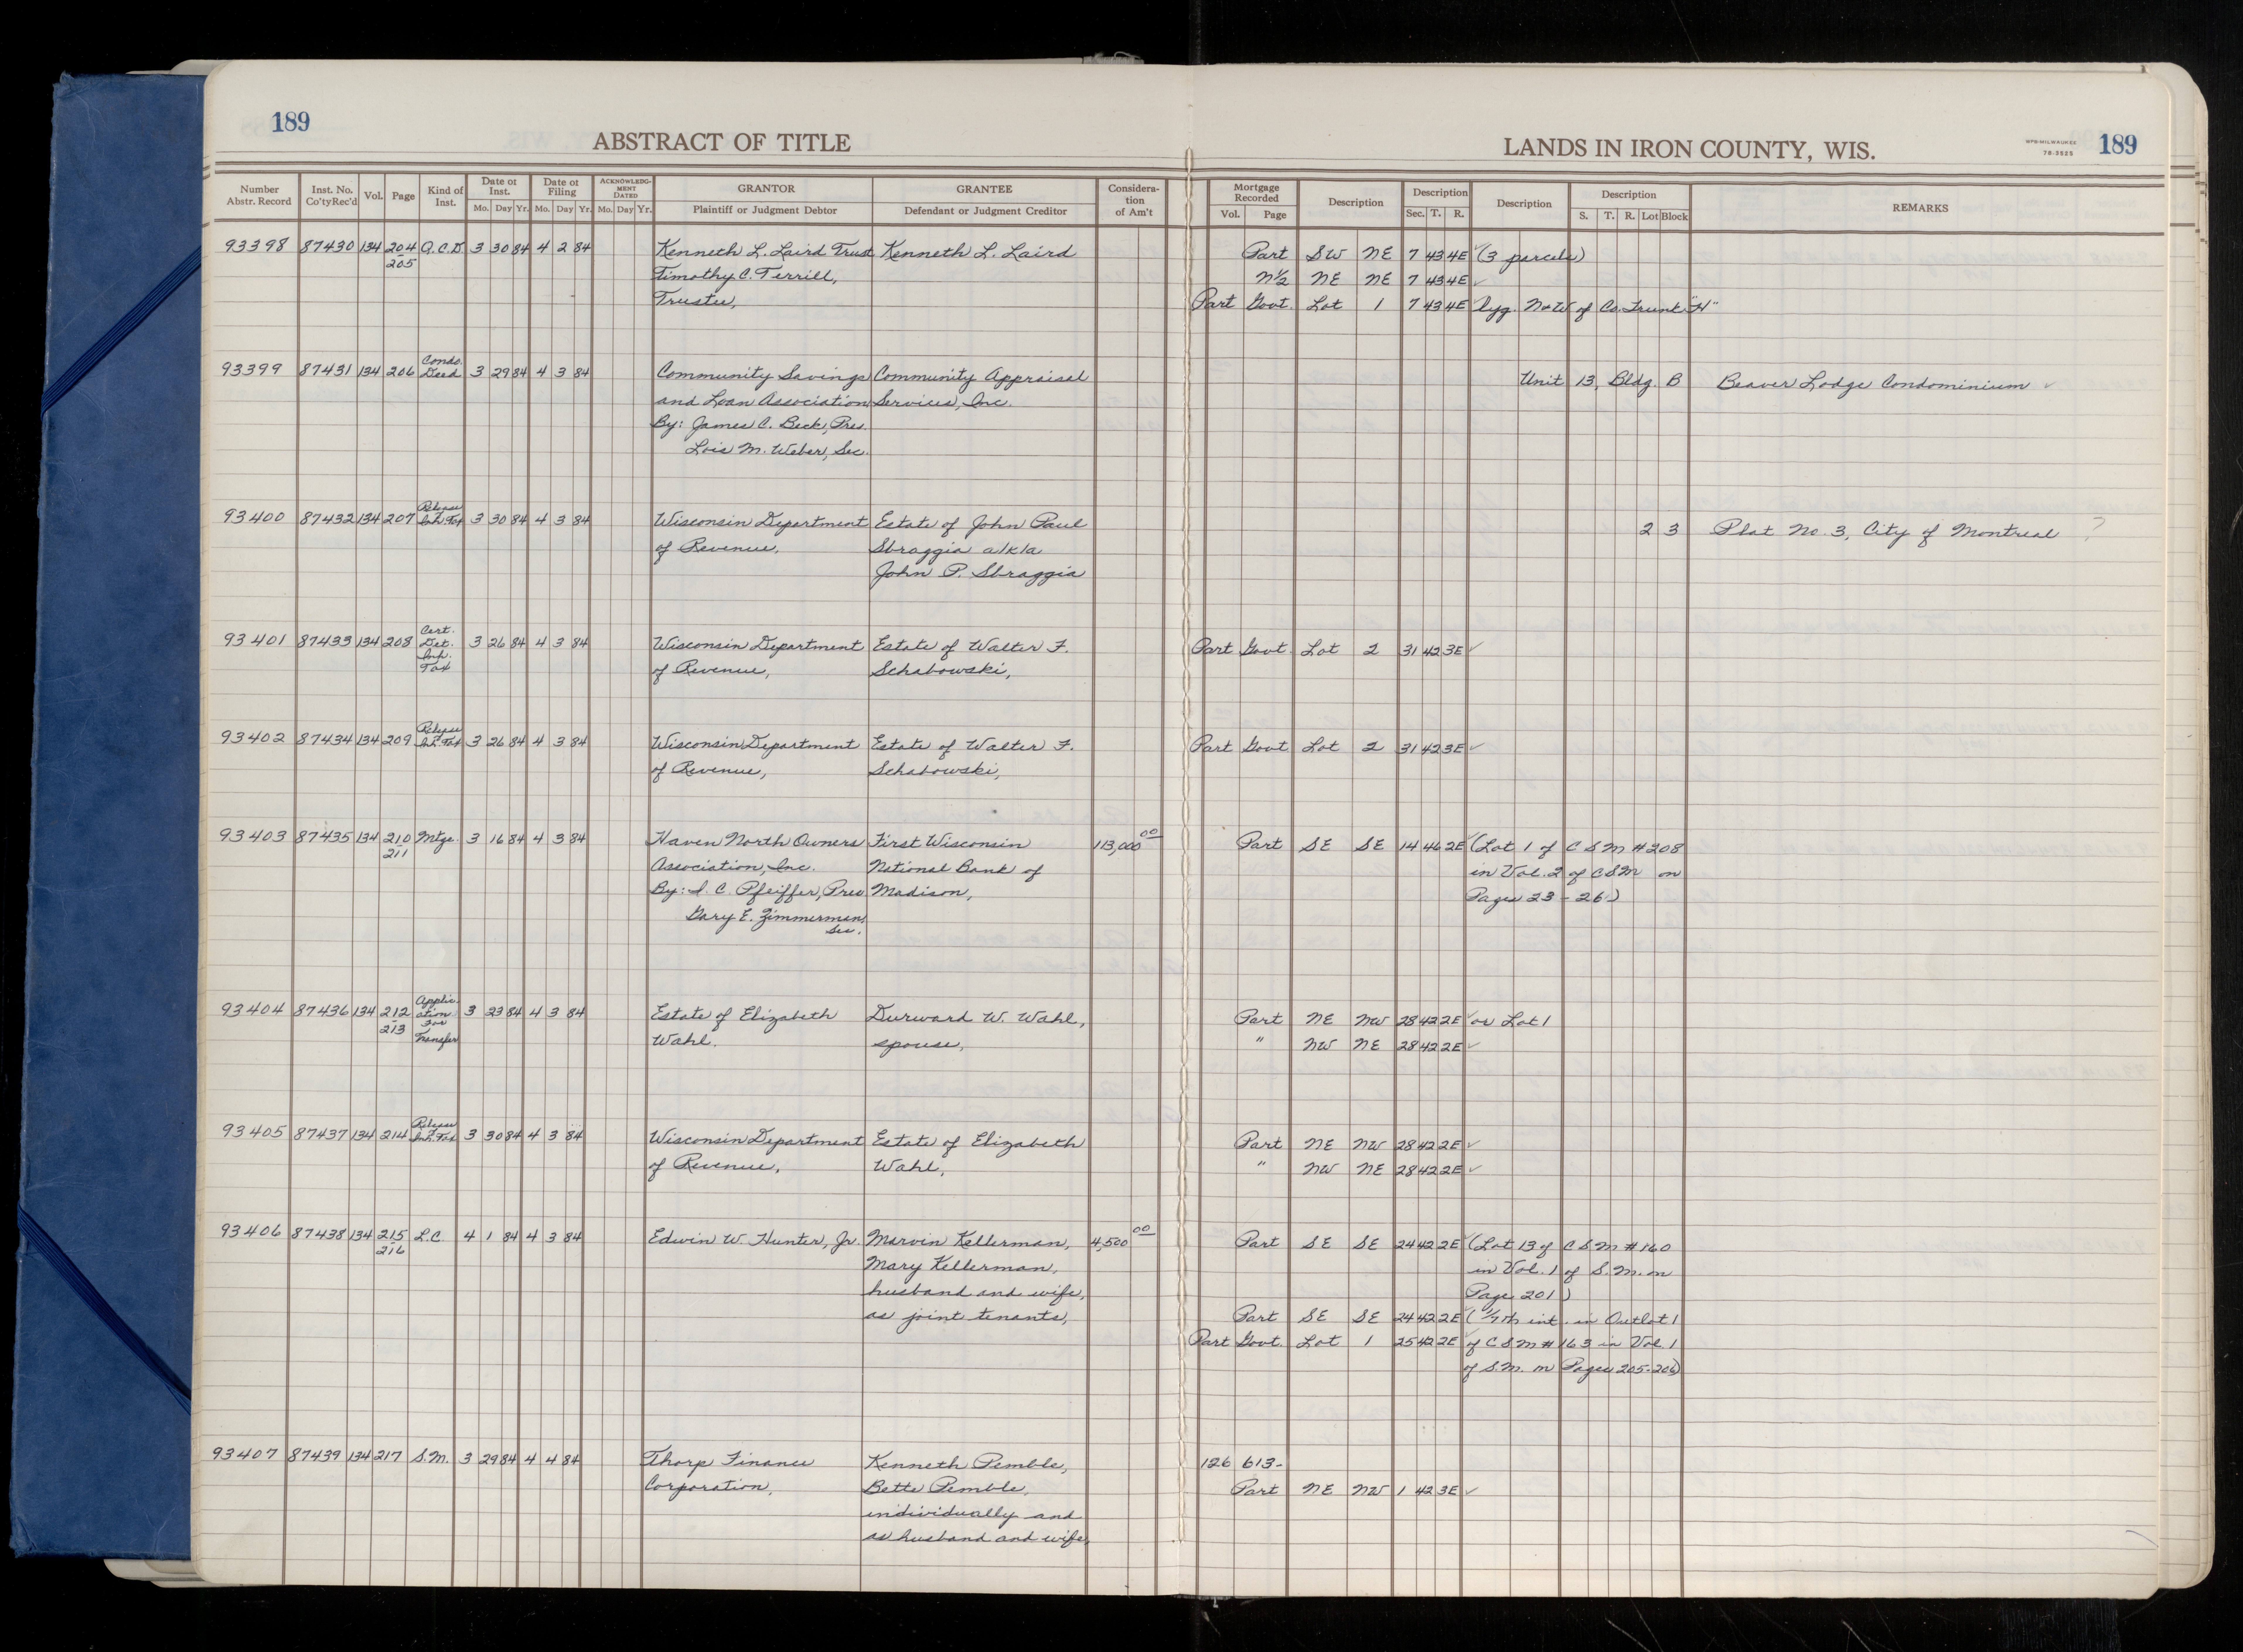 189
ABSTRACT OF TITLE
LANDS IN IRON COUNTY, WIS.
WPB-MILWAUKEE
78-3525
189
Number Abstr. Record Inst. No. Co'ty Rec'd Vol. Page Kind of Inst. Date of Inst. Mo. Day Yr. Date of Filing Mo. Day Yr. ACKNOWLEDG-MENT DATED Mo. Day Yr. GRANTOR Plaintiff or Judgment Debtor GRANTEE Defendant or Judgment Creditor Considera-tion of Am't Mortgage Recorded Vol. Page Description Description Sec. T. R. Description Description S. T. R. Lot Block REMARKS
93398 87430 134 204-205 Q.C.D. 3 30 84 4 2 84 Kenneth L. Laird Trust Kenneth L. Laird Part SW NE 7 43 4E ✓ (3 parcels)
Timothy C. Terrill, N½ NE NE 7 43 4E ✓
Trustee, Part Govt. Lot 1 7 43 4E ✓ lyg. N+W of Co. Trunk "H"
93399 87431 134 206 Condo. Deed 3 29 84 4 3 84 Community Savings Community Appraisal Unit 13, Bldg. B Beaver Lodge Condominium ✓
and Loan Association Services, Inc.
By: James C. Beck, Pres.
Lois M. Weber, Sec.
93400 87432 134 207 Release Inh. Tax 3 30 84 4 3 84 Wisconsin Department Estate of John Paul 2 3 Plat No. 3, City of Montreal ?
of Revenue, Sbraggia a/k/a
John P. Sbraggia
93401 87433 134 208 Cert. Det. Inh. Tax 3 26 84 4 3 84 Wisconsin Department Estate of Walter F. Part Govt. Lot 2 31 42 3E ✓
of Revenue, Schabowski,
93402 87434 134 209 Release Inh. Tax 3 26 84 4 3 84 Wisconsin Department Estate of Walter F. Part Govt Lot 2 31 42 3E ✓
of Revenue, Schabowski,
93403 87435 134 210-211 Mtge. 3 16 84 4 3 84 Haven North Owners First Wisconsin 113,000 00 Part SE SE 14 46 2E ✓ (Lot 1 of CSM #208
Association, Inc. National Bank of in Vol. 2 of CSM on
By: I. C. Pfeiffer, Pres Madison, Pages 23-26)
Gary E. Zimmerman,
Sec.
93404 87436 134 212-213 Application For Transfer 3 23 84 4 3 84 Estate of Elizabeth Durward W. Wahl, Part NE NW 28 42 2E ✓ or Lot 1
Wahl. spouse, " NW NE 28 42 2E ✓
93405 87437 134 214 Release Inh. Tax 3 30 84 4 3 84 Wisconsin Department Estate of Elizabeth Part NE NW 28 42 2E ✓
of Revenue, Wahl, " NW NE 28 42 2E ✓
93406 87438 134 215-216 L.C 4 1 84 4 3 84 Edwin W. Hunter, Jr. Marvin Kellerman, 4,500 00 Part SE SE 24 42 2E ✓ (Lot 13 of CSM #160
Mary Kellerman, in Vol. 1 of S.M. on
husband and wife, Page 201)
as joint tenants, Part SE SE 24 42 2E ✓ (1/7th int. in Outlot 1
Part Govt. Lot 1 25 42 2E ✓ of CSM #163 in Vol. 1
of S.M. on Pages 205-206)
93407 87439 134 217 S.M. 3 29 84 4 4 84 Thorp Finance Kenneth Pemble, 126 613-
Corporation, Bette Pemble, Part NE NW 1 42 3E ✓
individually and
as husband and wife,